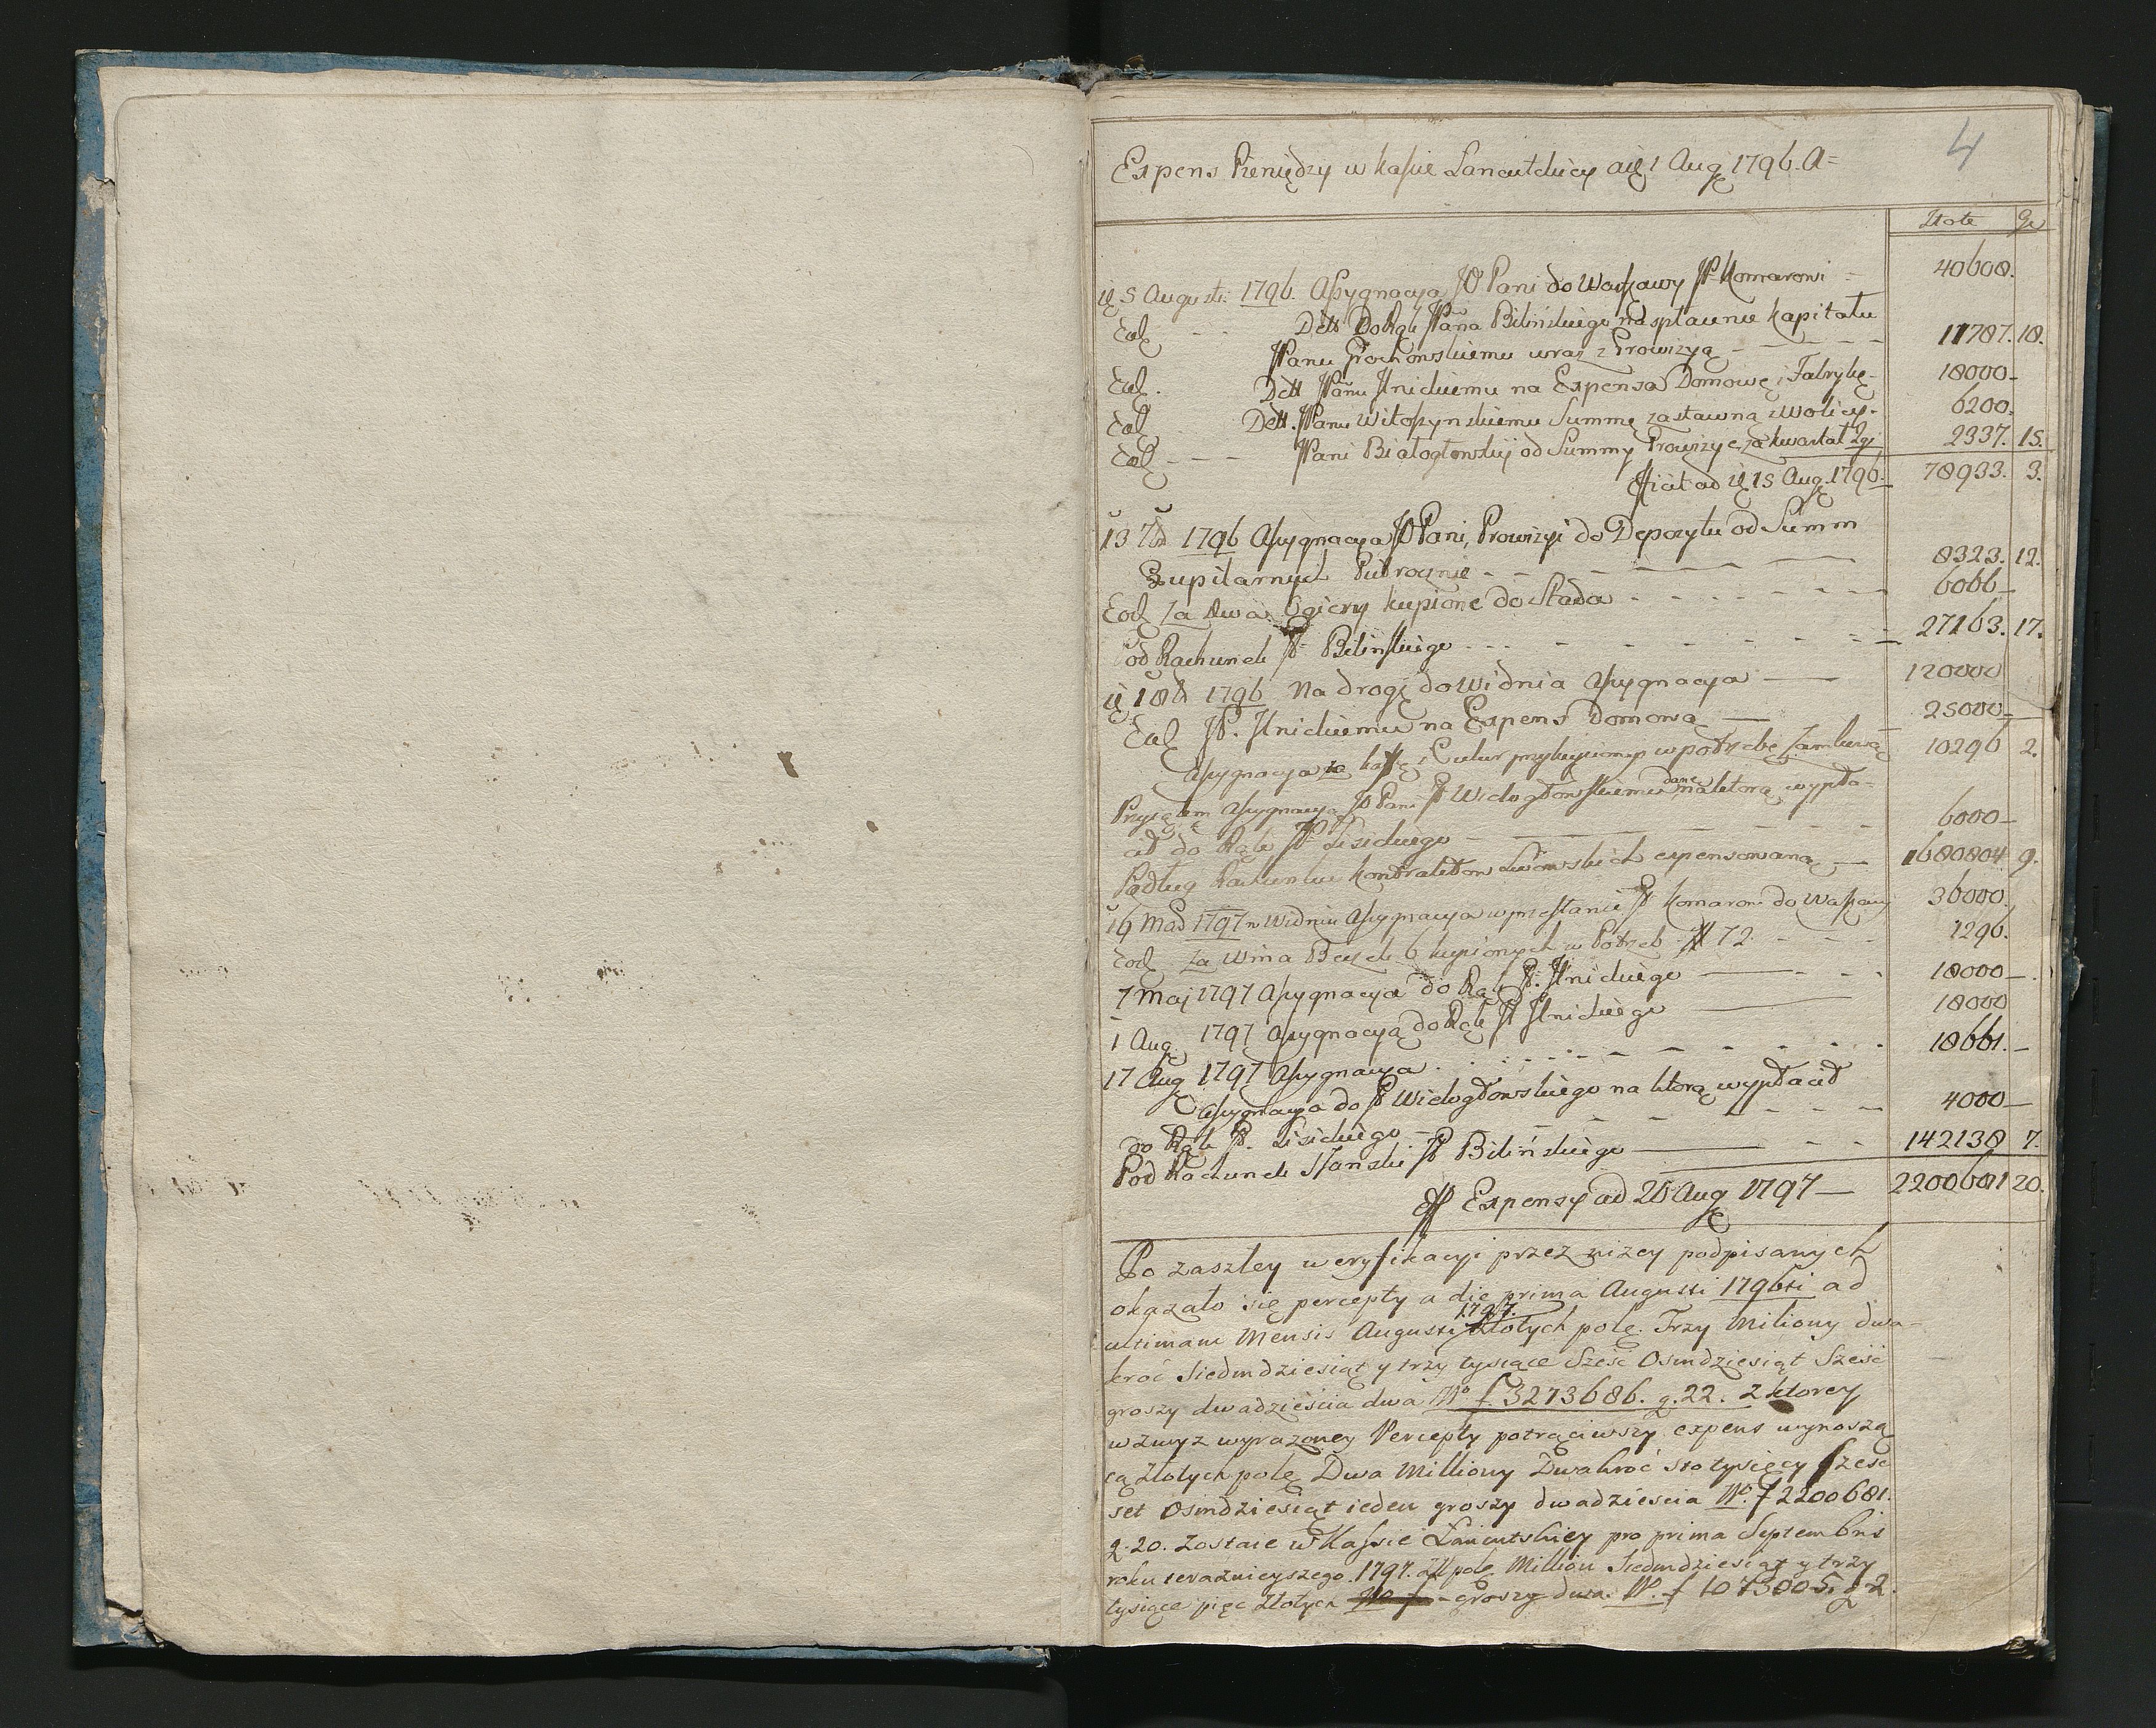 4
Expens Pieniędzy w kassie Lancutckiey a 1 Aug 1796. A=
Złote Gr
5 Augusti 1796. Assygnacya JO Pani do Warszawy JP. Komarowi - 40608.
Eod - - Dett Do Rąk JPana Bilińskiego na spłacenie kapitału
JPanu Grochowskiemu wraz z Prowizyą - - - - 11787. 18.
Eod. Dett JPanu Ilnickiemu na Expensa Domowę i Fabrykę - 18000 -
Eod Dett. JPanu Witoszynskiemu Summę zastawną z Wolicy. 6200.
Eod - - - JPani Białogłowskij od Summy Prowizye za kwartał 2gi 2337. 15.
ad 15 Aug. 1796. 78933. 3.
13 7br 1796 Assygnacya JO Pani, Prowizyi do Depozytu od Summ
Pupilarnych Półrocznie - - - 8323. 12.
Eod za dwa Ogiery kupione do Stada - - - - 6066 -
od Rachunek JP Bilińskiego - - - 27163. 17.
18 1796 Na drogę do Widnia Assygnacya - 120000
Eod JP. Ilnickiemu na Expens Domową - 25000 -
Assygnacya za kassę w potrzebę Zamkową 10296 2.
Przyiąłem Assygnacyą JO Pani JP Wielogłowskiemu daną na ktorą wypła-
cił do Rąk JP Lisickiego - - - 6000 -
Podług Rachunku Kontraktow Lwowskich expensowaną - 1680804 9.
16 1797 w Widniu Assygnacya w przesłanie JP Komarowi do Warszawy 36000.
Eod za Wina Beczek 6 kupionych w Potrzeb # 72 - - - 1296.
7 Maj 1797 Assygnacya do Rąk JP. Ilnickiego - 18000 -
1 Aug. 1797 Assygnacyą do Rąk JP Ilnickiego - 18000
17 Aug 1797 Assygnacya - - - 18661. -
Assygnacya do JP Wielogłowskiego na ktorą wypłacił
do Rąk JP. Lisickiego - - - 4000 -
Pod Rachunek JP Bilińskiego - - - 142138 7.
Expensy ad 20 Aug 1797 - 2200681 20.
Po zaszłey weryfikacyi przez niżey podpisanych
okazało się percepty a die prima Augusti 1796ti ad
ultimam Mensis Augusti 1797. Złotych pol. Trzy Miliony dwa-
kroć Siedmdziesiąt y trzy tysiące Sześć Osmdziesiąt Sześć
groszy dwadzieścia dwa No f 3273686. g. 22. z ktorey
wzwyz wyrazoney Percepty potrąciwszy expens wynoszą
cą Złotych pol. Dwa Milliony Dwakroć sto tysięcy Sześć
set Osmdziesiąt ieden groszy dwadzieścia No. f 2200681.
g. 20. zostaie w Kassie Lancutskiey pro prima Septembris
roku teraznieyszego. 1797. Zł pol. Million Siedmdziesiąt y trzy
tysiące pięć Złotych No f - groszy dwa. No. f 1073005. g. 2.